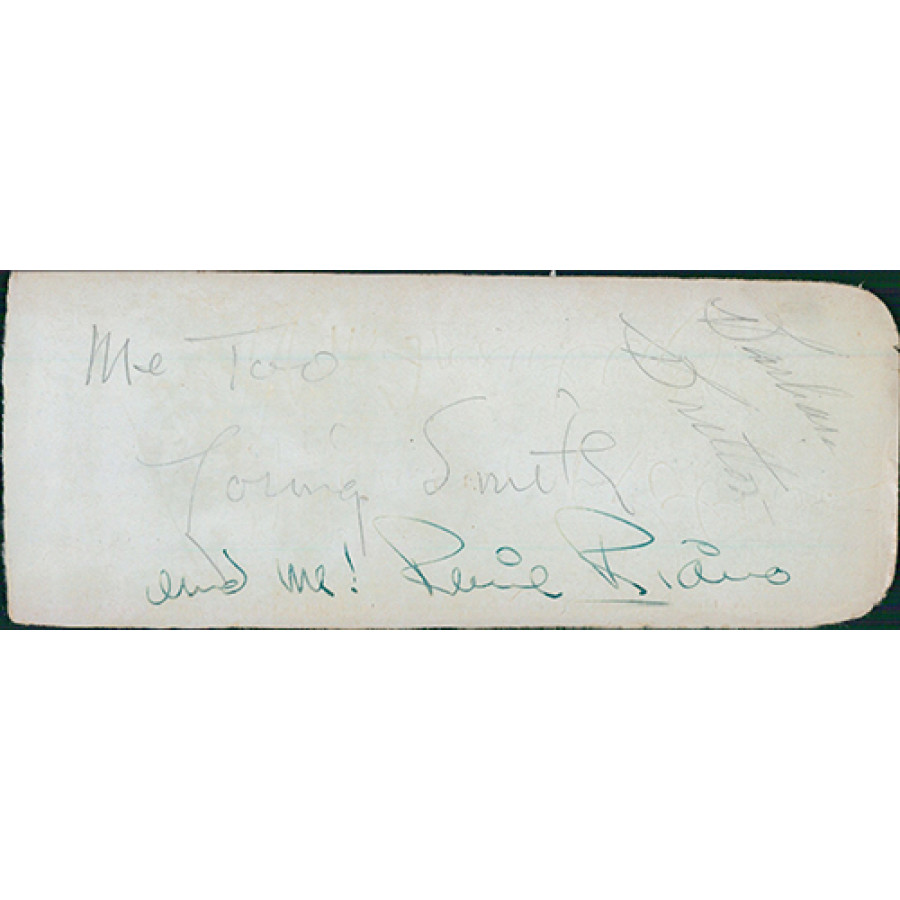 Me Too
Loring Smith
and me! Renie Riano